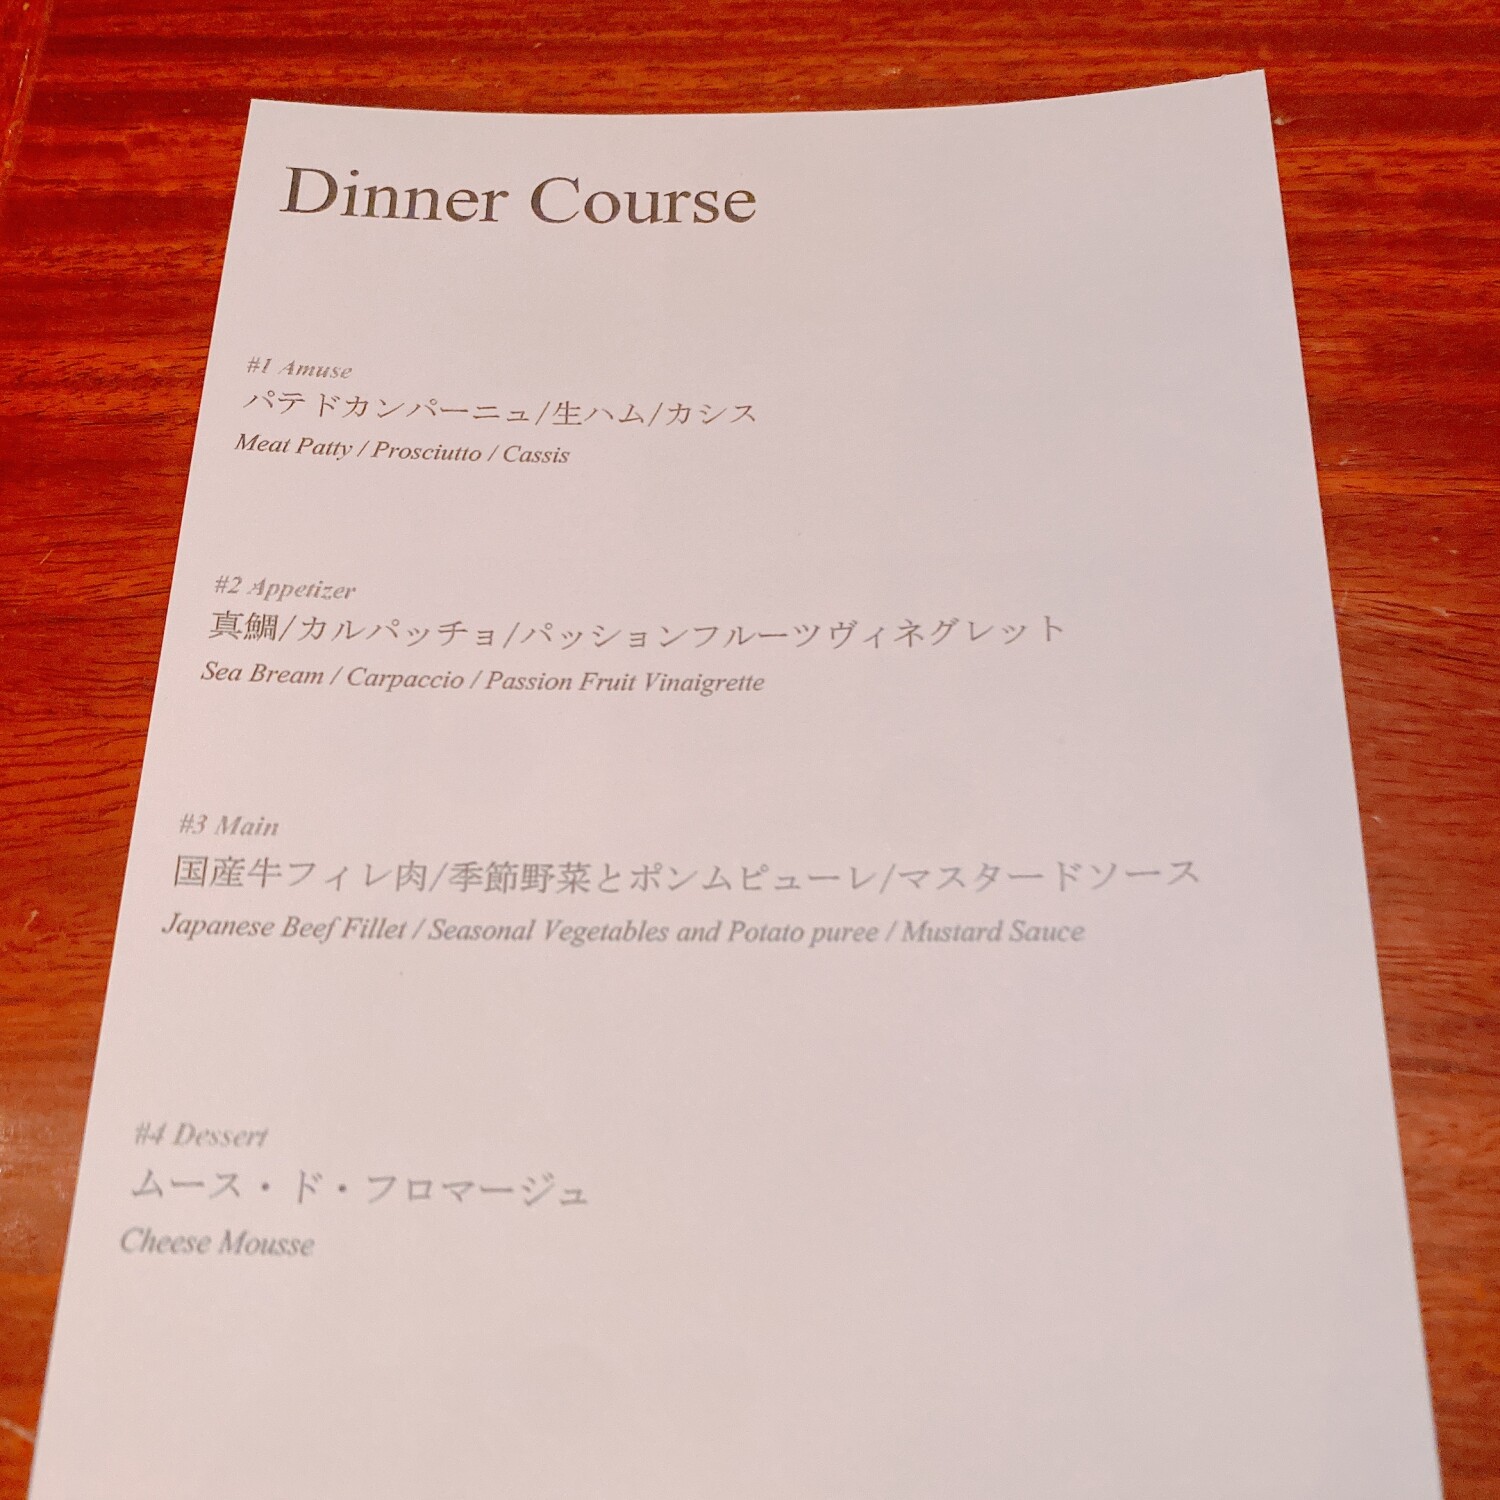 Dinner Course
#1 Amuse
パテドカンパーニュ/生ハム/カシス
Meat Patty / Prosciutto / Cassis
#2 Appetizer
真鯛/カルパッチョ/パッションフルーツヴィネグレット
Sea Bream / Carpaccio / Passion Fruit Vinaigrette
#3 Main
国産牛フィレ肉/季節野菜とポンムピューレ/マスタードソース
Japanese Beef Fillet / Seasonal Vegetables and Potato puree / Mustard Sauce
#4 Dessert
ムース・ド・フロマージュ
Cheese Mousse